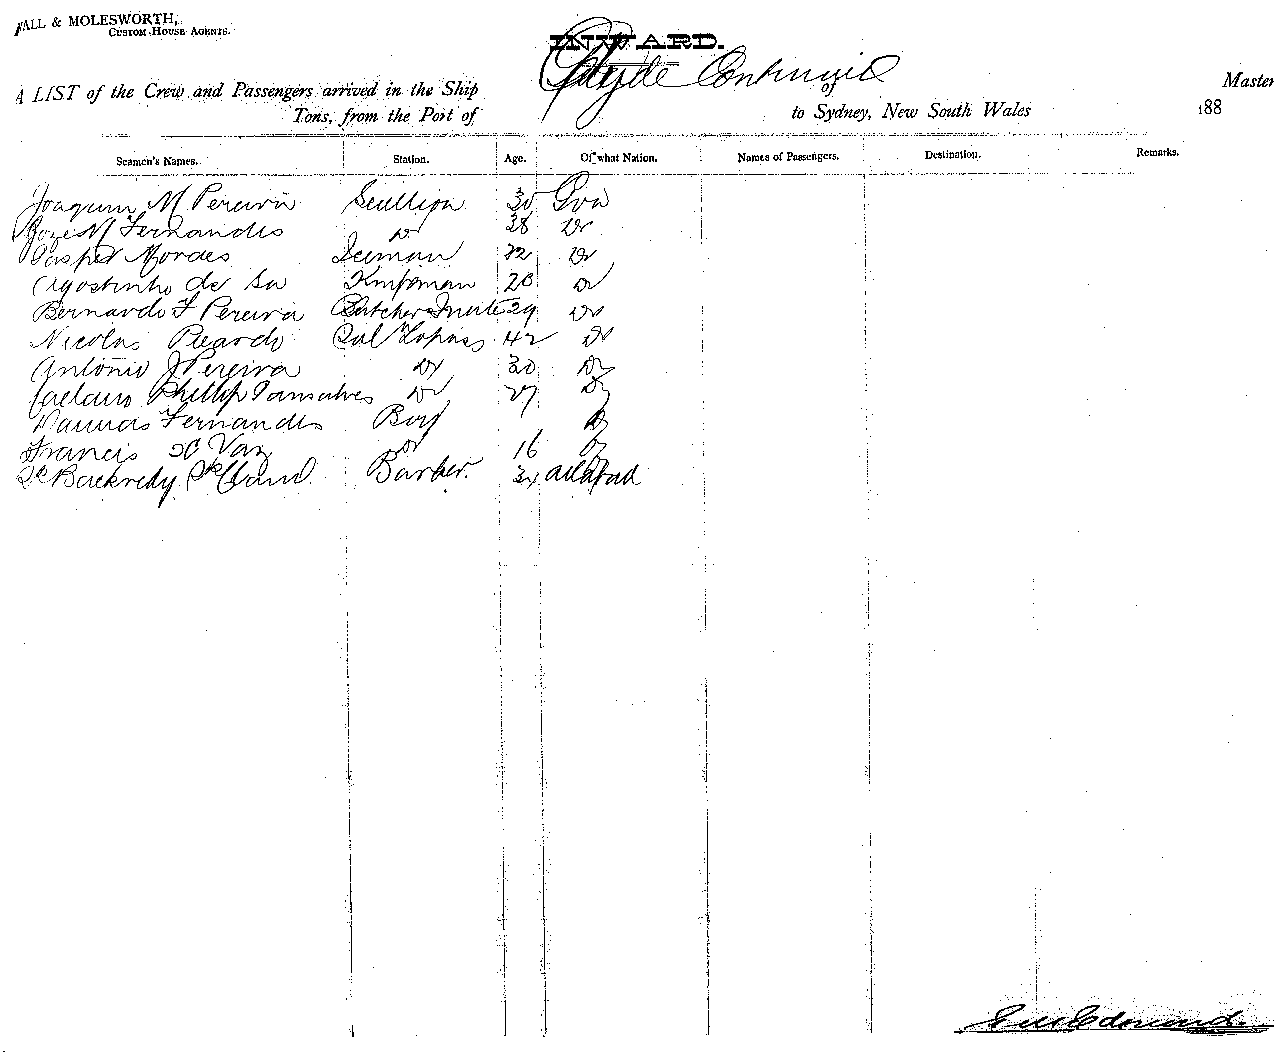 ALL & MOLESWORTH,
CUSTOM HOUSE AGENTS.
INWARD.
Clyde Continued
A LIST of the Crew and Passengers arrived in the Ship of Master
Tons, from the Port of to Sydney, New South Wales 188
Seamen's Names. Station. Age. Of what Nation. Names of Passengers. Destination. Remarks.
Joaquim M Pereira Scullion 30 Goa
Joze M Fernandes Do 38 Do
Gasper Mordes 22 Do
Agostinho de Sa 20 Do
Bernardo F Pereira Butchers Mate 29 Do
Nicolas 42 Do
Antonio J Pereira Do 30 Do
Caetano Phillip Gonsalves Do 27 Do
Fernandes Boy Do
Francis X Vaz Do 16 Do
Barber